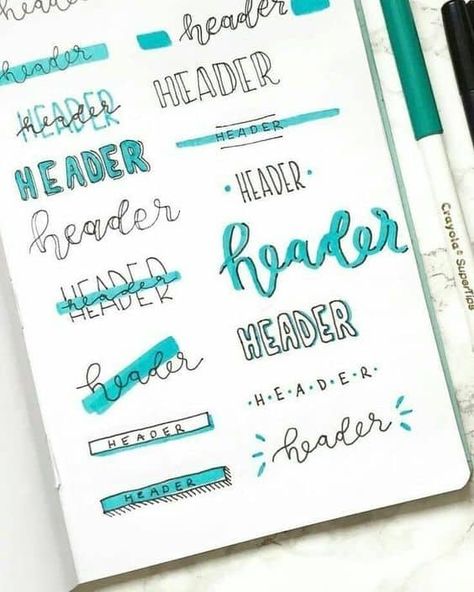 header
header
HEADER
header
HEADER
header
HEADER
header
header
HEADER
HEADER
header
HEADER
HEADER
HEADER
header
HEADER
·H·E·A·D·E·R·
header
Crayola SuperTips